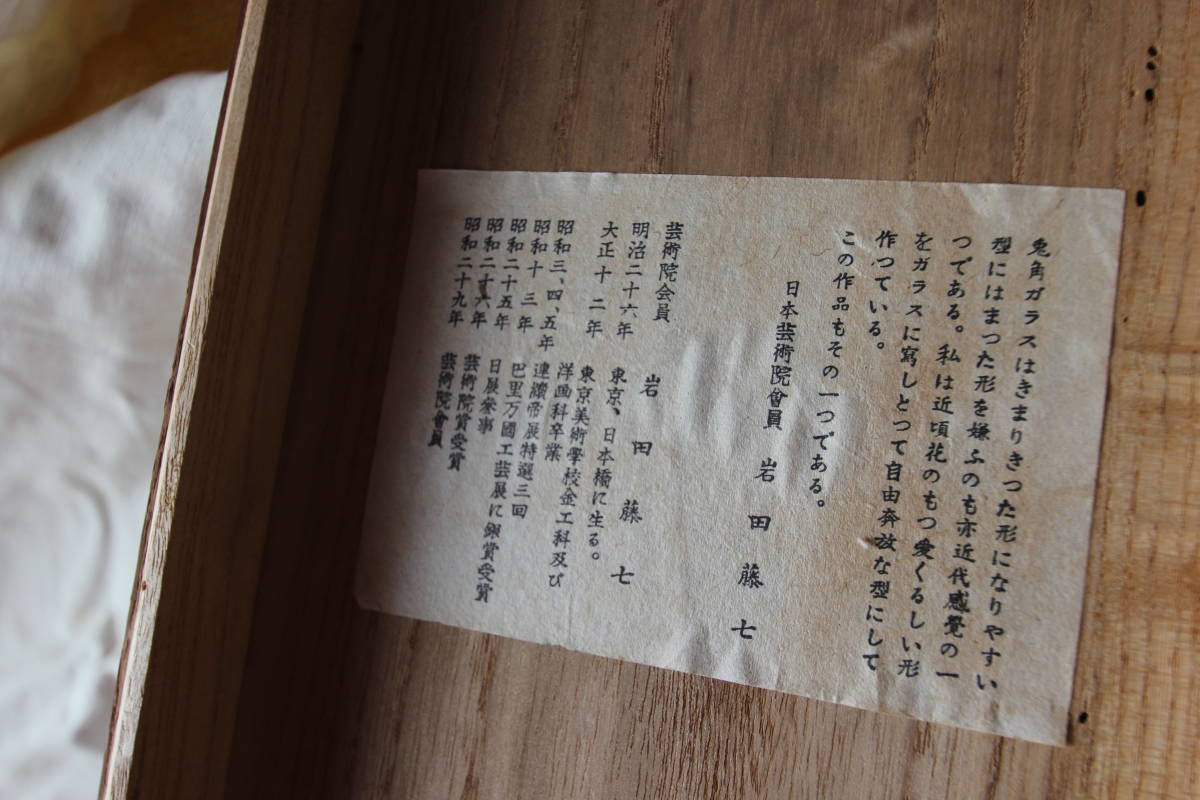 兎角ガラスはきまりきつた形になりやすい
型にはまつた形を嫌ふのも亦近代感覺の一
つである。私は近頃花のもつ愛くるしい形
をガラスに寫しとつて自由奔放な型にして
作つている。
この作品もその一つである。
日本芸術院會員 岩田藤七
芸術院会員 岩田藤七
明治二十六年 東京、日本橋に生る。
大正十二年 東京美術學校金工科及び
洋画科卒業
昭和三、四、五年 連續帝展特選三回
昭和十三年 巴里万國工芸展に銀賞受賞
昭和二十五年 日展参事
昭和二十六年 芸術院賞受賞
昭和二十九年 芸術院會員